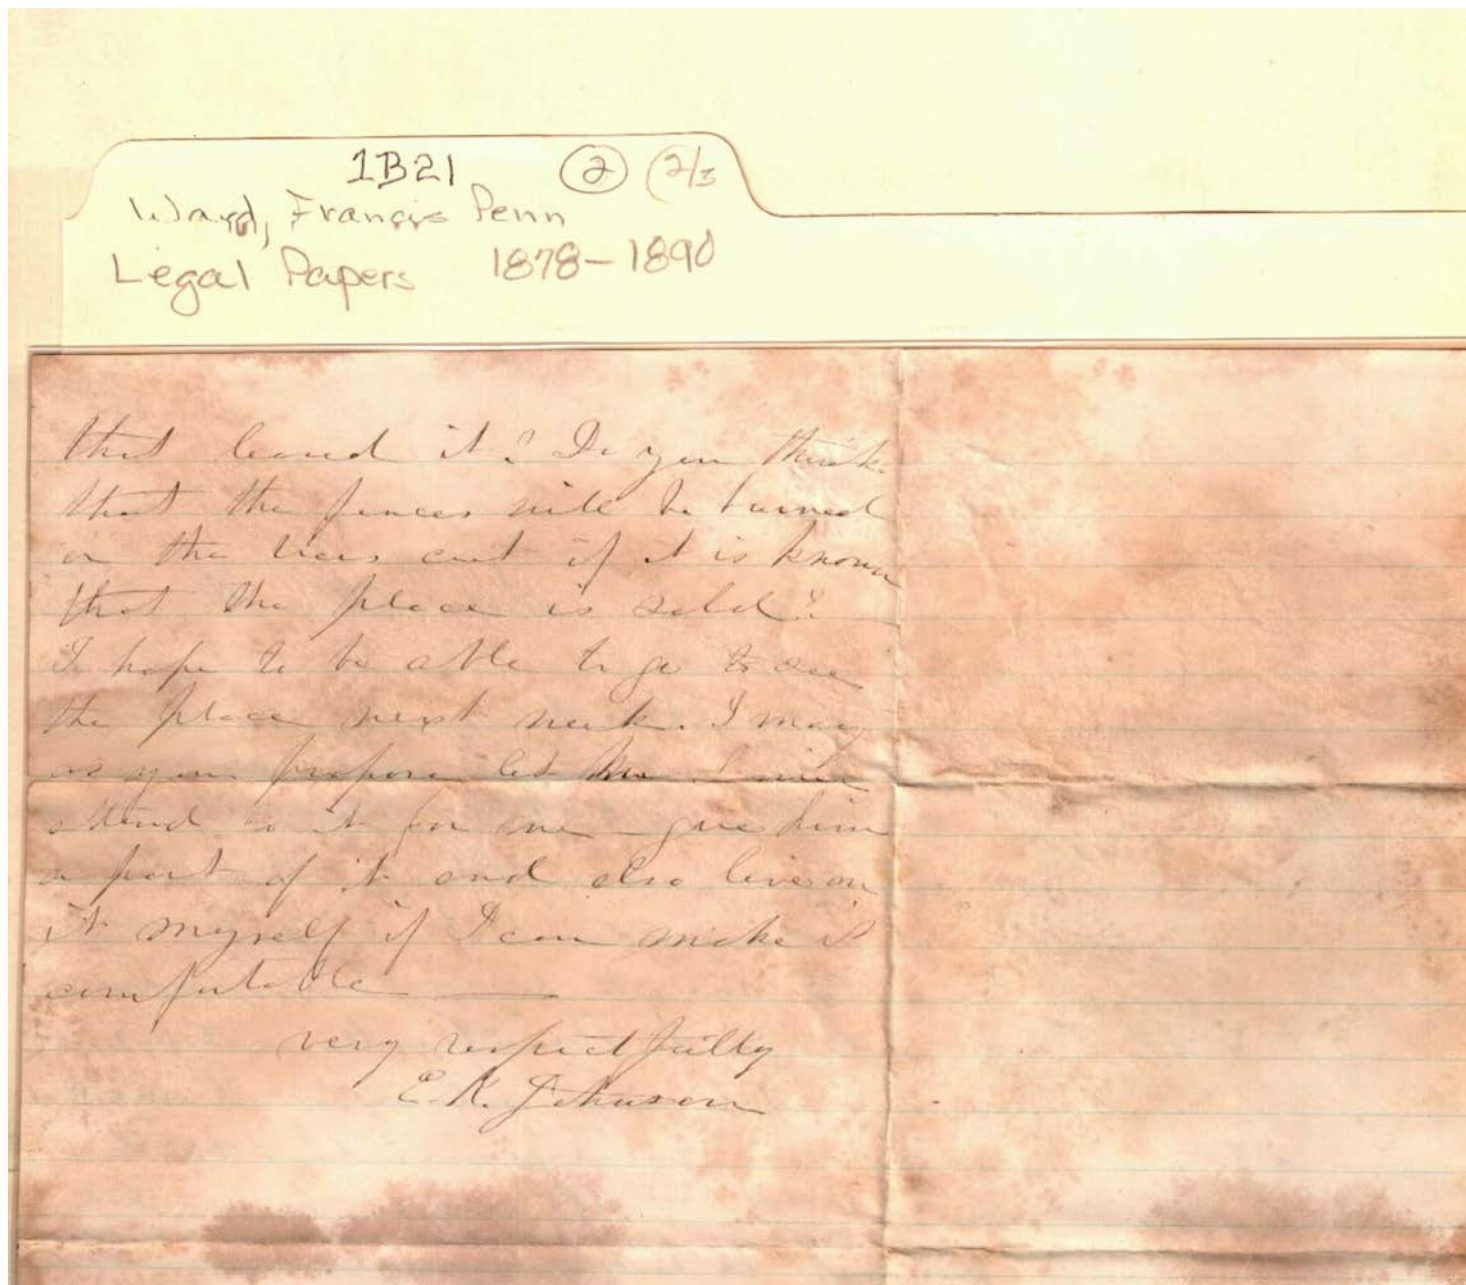 1B21 2 (2/3
Ward, Francis Penn
Legal Papers 1878-1890
that leased it? Do you think
that the fences will be burned
or the trees cut if it is known
that the place is sold?
I hope to be able to go to see
the place next week. I may
as you propose let
attend to it for me – give him
a part of it and also live on
it myself if I can make it
comfortable —
very respectfully
E. K. Johnson